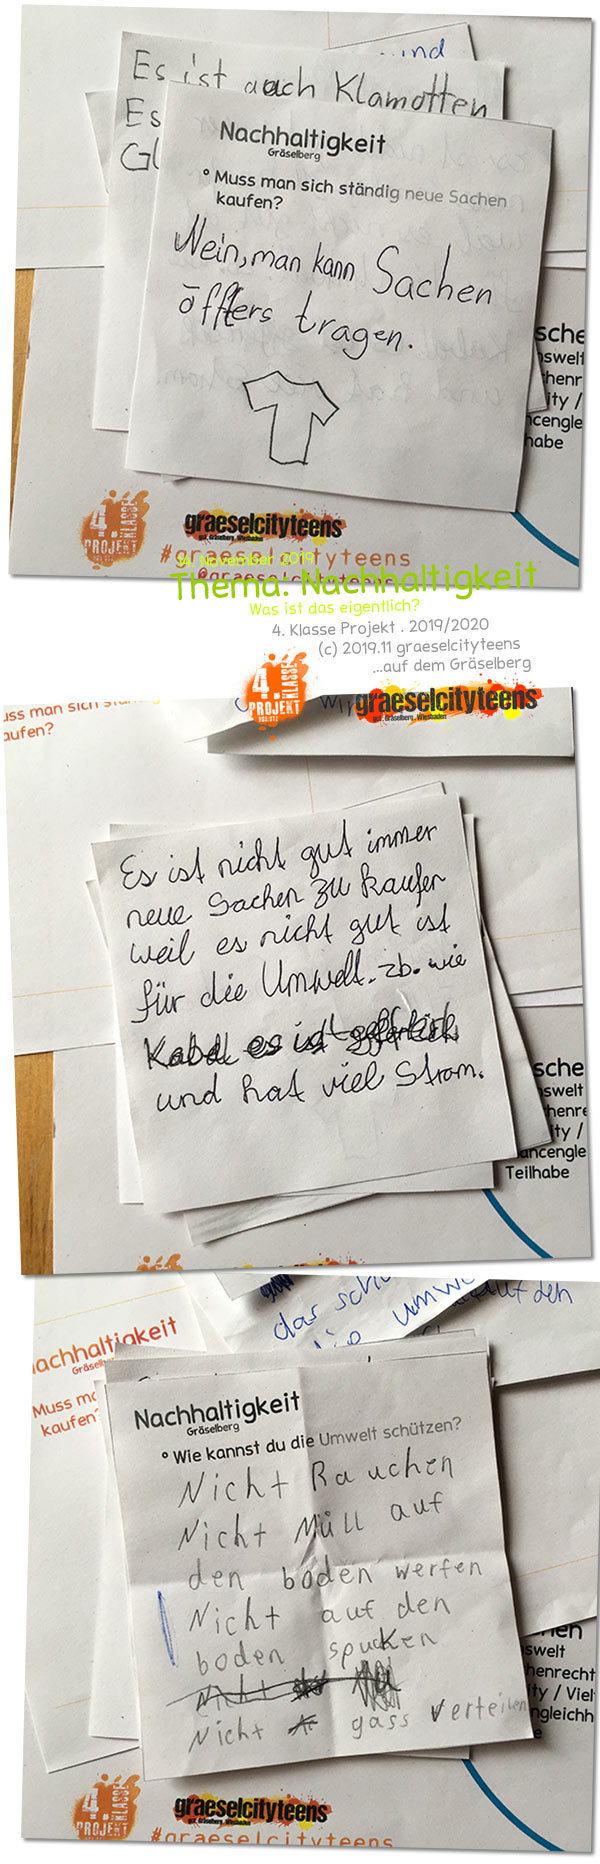 und
Es ist auch Klamotten
Es
Gl
Nachhaltigkeit
Gräselberg
° Muss man sich ständig neue Sachen
kaufen?
Nein, man kann Sachen
öffters tragen.
sche
nswelt
henr
ity /
ncengle
habe
4.
PROJEKT
KLASSE
graeselcityteens
gcf. Gräselberg. Wiesbaden
#graeselcityteens
@graeselcityteens
14. November 2019
Thema. Nachhaltigkeit
Was ist das eigentlich?
4. Klasse Projekt . 2019/2020
(c) 2019.11 graeselcityteens
...auf dem Gräselberg
4.
PROJEKT
KLASSE
graeselcityteens
gcf. Gräselberg. Wiesbaden
uss man sich ständig
aufen?
wir
Es ist nicht gut immer
neue Sachen zu kaufen
weil es nicht gut ist
für die Umwelt. zb. wie
Kabel es ist
und hat viel Strom.
sche
nswelt
henre
ity /
ancengle
Teilhabe
achhaltigkeit
Gräse
Muss ma
kaufen?
das
die umw
auf den
Nachhaltigkeit
Gräselberg
° Wie kannst du die Umwelt schützen?
Nicht Rauchen
Nicht Müll auf
den boden werfen
Nicht auf den
boden spucken
Nicht
Nicht gass verteilen
nen
nswelt
henrecht
ity / Viel
ngleichh
be
4.
PROJEKT
KLASSE
graeselcityteens
gcf. Gräselberg. Wiesbaden
#graeselcityteens